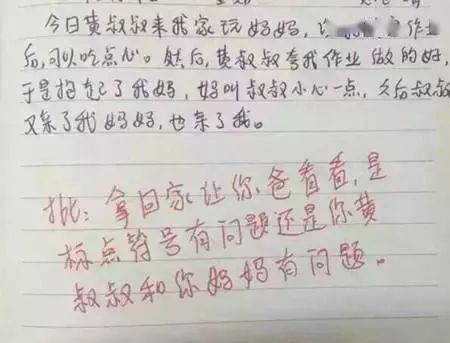 今日黄叔叔来我家玩妈妈，作业
后，可以吃点心。然后，黄叔叔夸我作业做的好，
于是抱起了我妈，妈叫叔叔小心一点，久后叔叔
又亲了我妈妈，也亲了我。
批：拿回家让你爸看看，是
标点符号有问题还是你黄
叔叔和你妈妈有问题。